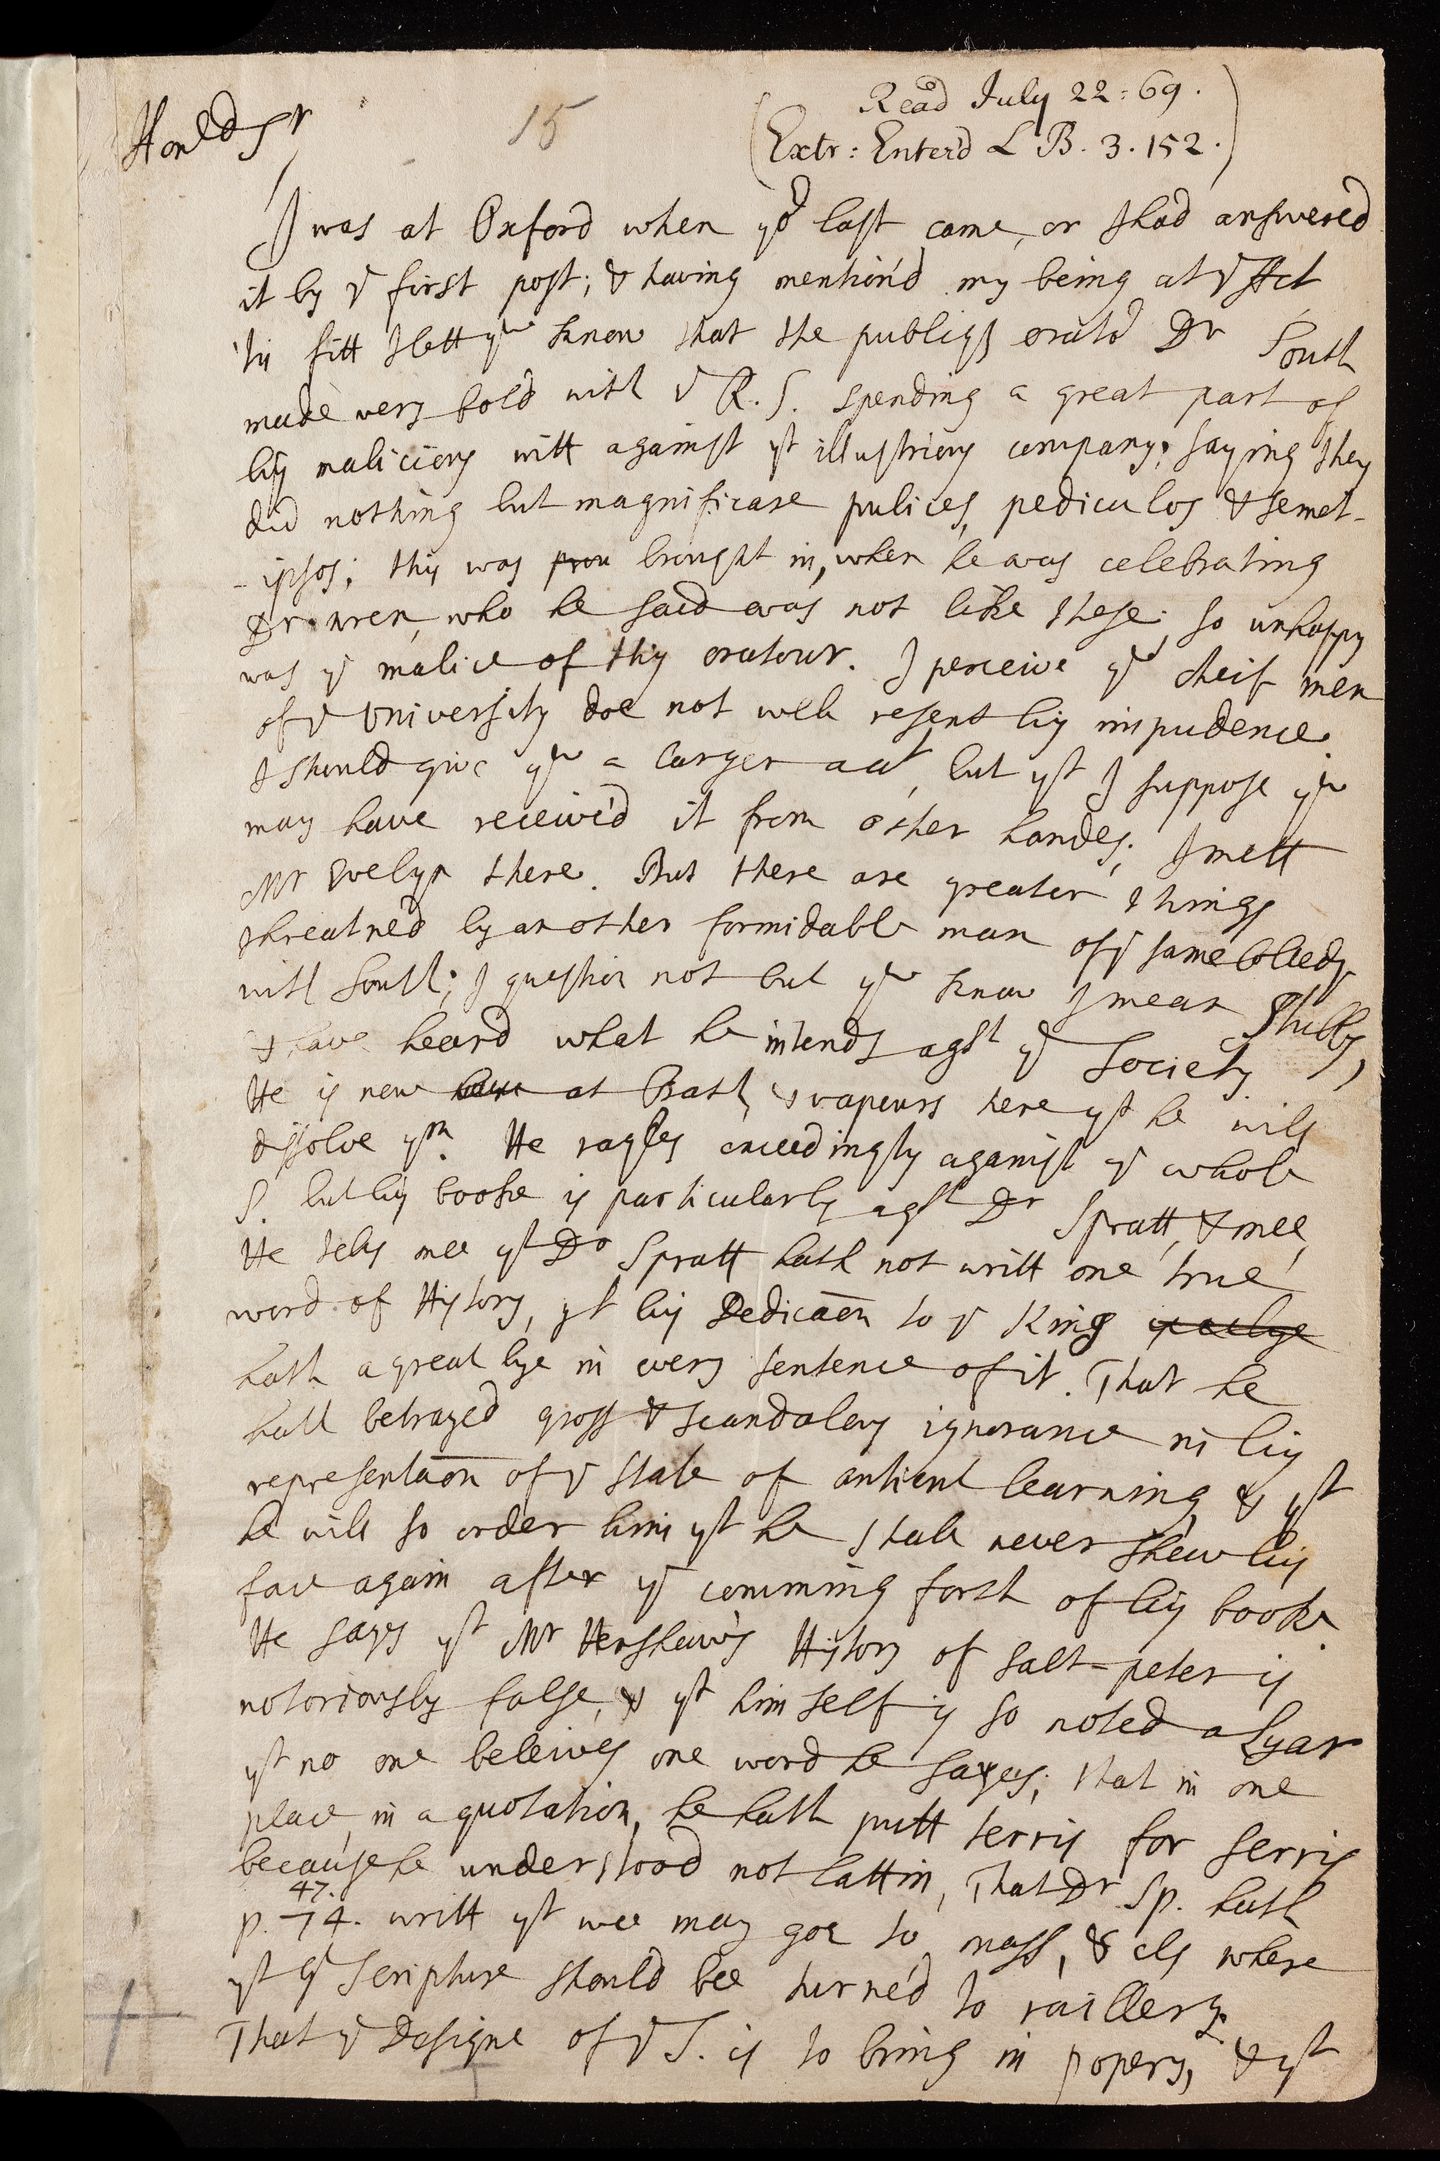 Read July 22: 69.
Extr: Enter'd L B. 3. 152.
15
Honrd Sr
I was at Oxford when yor last came, or I had answered
it by ye first post; & having mention'd my being at ye Act
'tis fitt I lett you know that the publiqs orator Dr South
made very bold with ye R. S. spending a great part of
his malicious witt against yt illustrious company: saying they
did nothing but magnificare pulices, pediculos & semet-
-ipsos; this was brought in, when he was celebrating
Dr wren, who he said was not like these; so unhappy
was ye malice of this oratour. I perceive ye cheif men
of ye University doe not well resent his impudence.
I should give you a larger acct, but yt I suppose you
may have receiv'd it from other handes; I mett
Mr Evelyn there. But there are greater things
threatned by another formidable man of ye same Colledg
with South; I question not but you know I mean Stubbs,
& have heard what he intends agst ye Society
He is now at Bath, & vapours here yt he will
dissolve ym. He rages exceedingly against ye whole
S. but his booke is particularly agst Dr Spratt, & mee,
He tells mee yt Dr Spratt hath not writt one true
word of History, yt his Dedicaon to ye King
hath a great lye in every sentence of it. That he
hath betrayed gross & scandalous ignorance in his
representaon of ye state of antient learning, & yt
he will so order him yt he shall never shew his
face again after ye comming forth of his booke
He says yt Mr Henshaw's History of salt-peter is
notoriously false, & yt himself is so noted a Lyar
yt no one beleives one word he sayes; that in one
place, in a quotation, he hath putt terris for serris
because he understood not lattin, That Dr Sp. hath
47.
p. 74. writt yt wee may goe to mass, & els where
yt ye scripture should bee turned to raillery.
That ye Designe of ye S. is to bring in popery, & yt